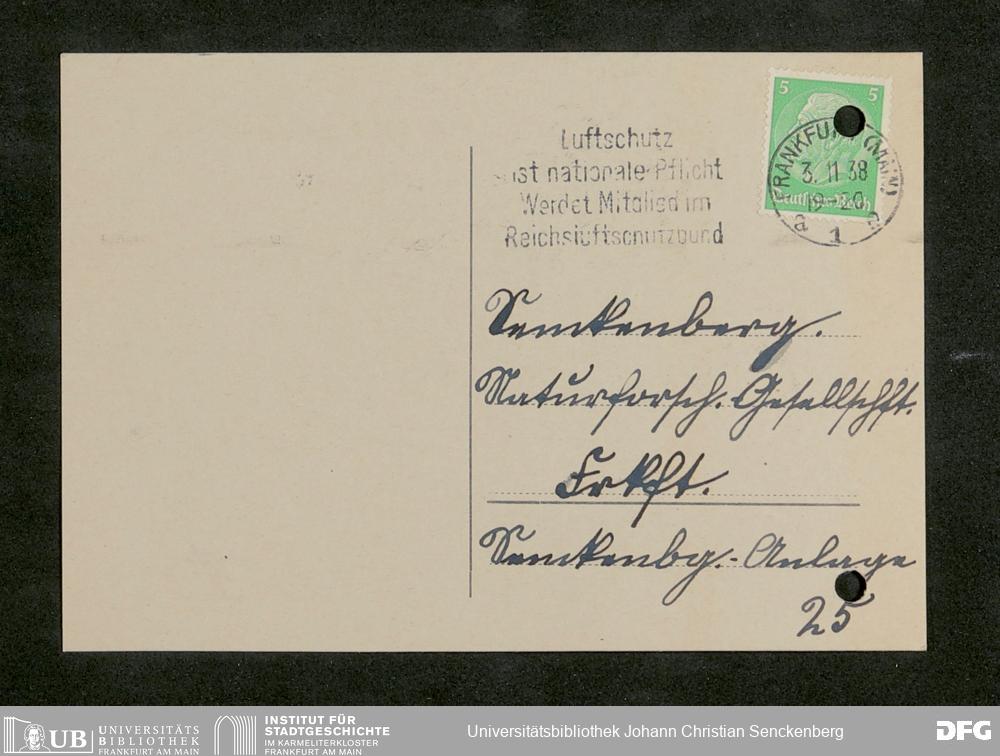 5 5
Luftschutz
ist nationale Pflicht
Werdet Mitglied im
Reichsluftschutzbund
FRANKFURT (MAIN)
3. 11 38
Deutsches Reich
a 1 a
Senckenberg.
Naturforsch. Gesellschft.
Frkft.
Senckenbg.-Anlage
25
UB UNIVERSITÄTS
BIBLIOTHEK
FRANKFURT AM MAIN
INSTITUT FÜR
STADTGESCHICHTE
IM KARMELITERKLOSTER
FRANKFURT AM MAIN
Universitätsbibliothek Johann Christian Senckenberg
DFG